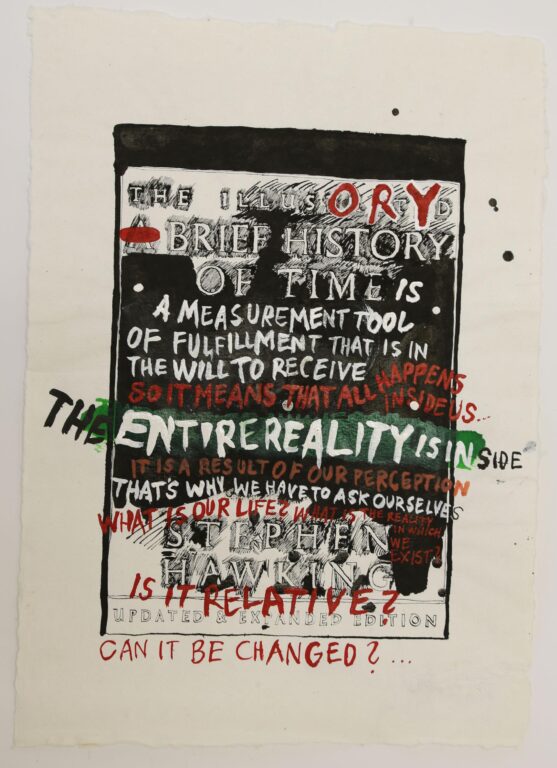 THE ILLUSORY D
A BRIEF HISTORY
OF TIME IS
A MEASUREMENT TOOL
OF FULFILLMENT THAT IS IN
THE WILL TO RECEIVE
SO IT MEANS THAT ALL HAPPENS
INSIDE US...
THE ENTIRE REALITY IS IN SIDE
IT IS A RESULT OF OUR PERCEPTION
THAT'S WHY WE HAVE TO ASK OURSELVES
WHAT IS OUR LIFE? WHAT IS THE REALITY
IN WHICH
WE
EXIST?
STEPHEN
HAWKING
IS IT RELATIVE?
UPDATED & EXPANDED EDITION
CAN IT BE CHANGED? ...